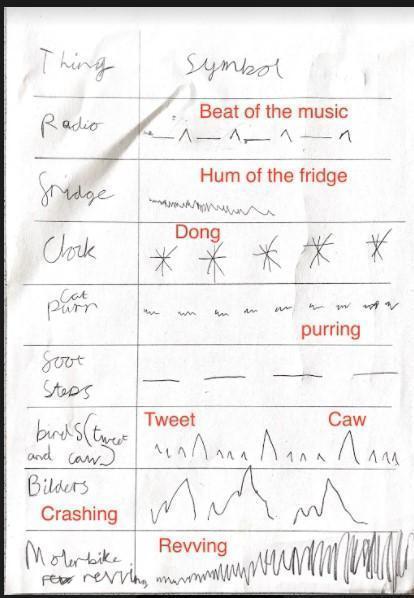 Thing Symbol
Radio Beat of the music
fridge Hum of the fridge
Clock Dong
Cat
purr purring
foot
steps
birds (tweet Tweet Caw
and caw)
Bilders
Crashing
Moterbike Revving
revving